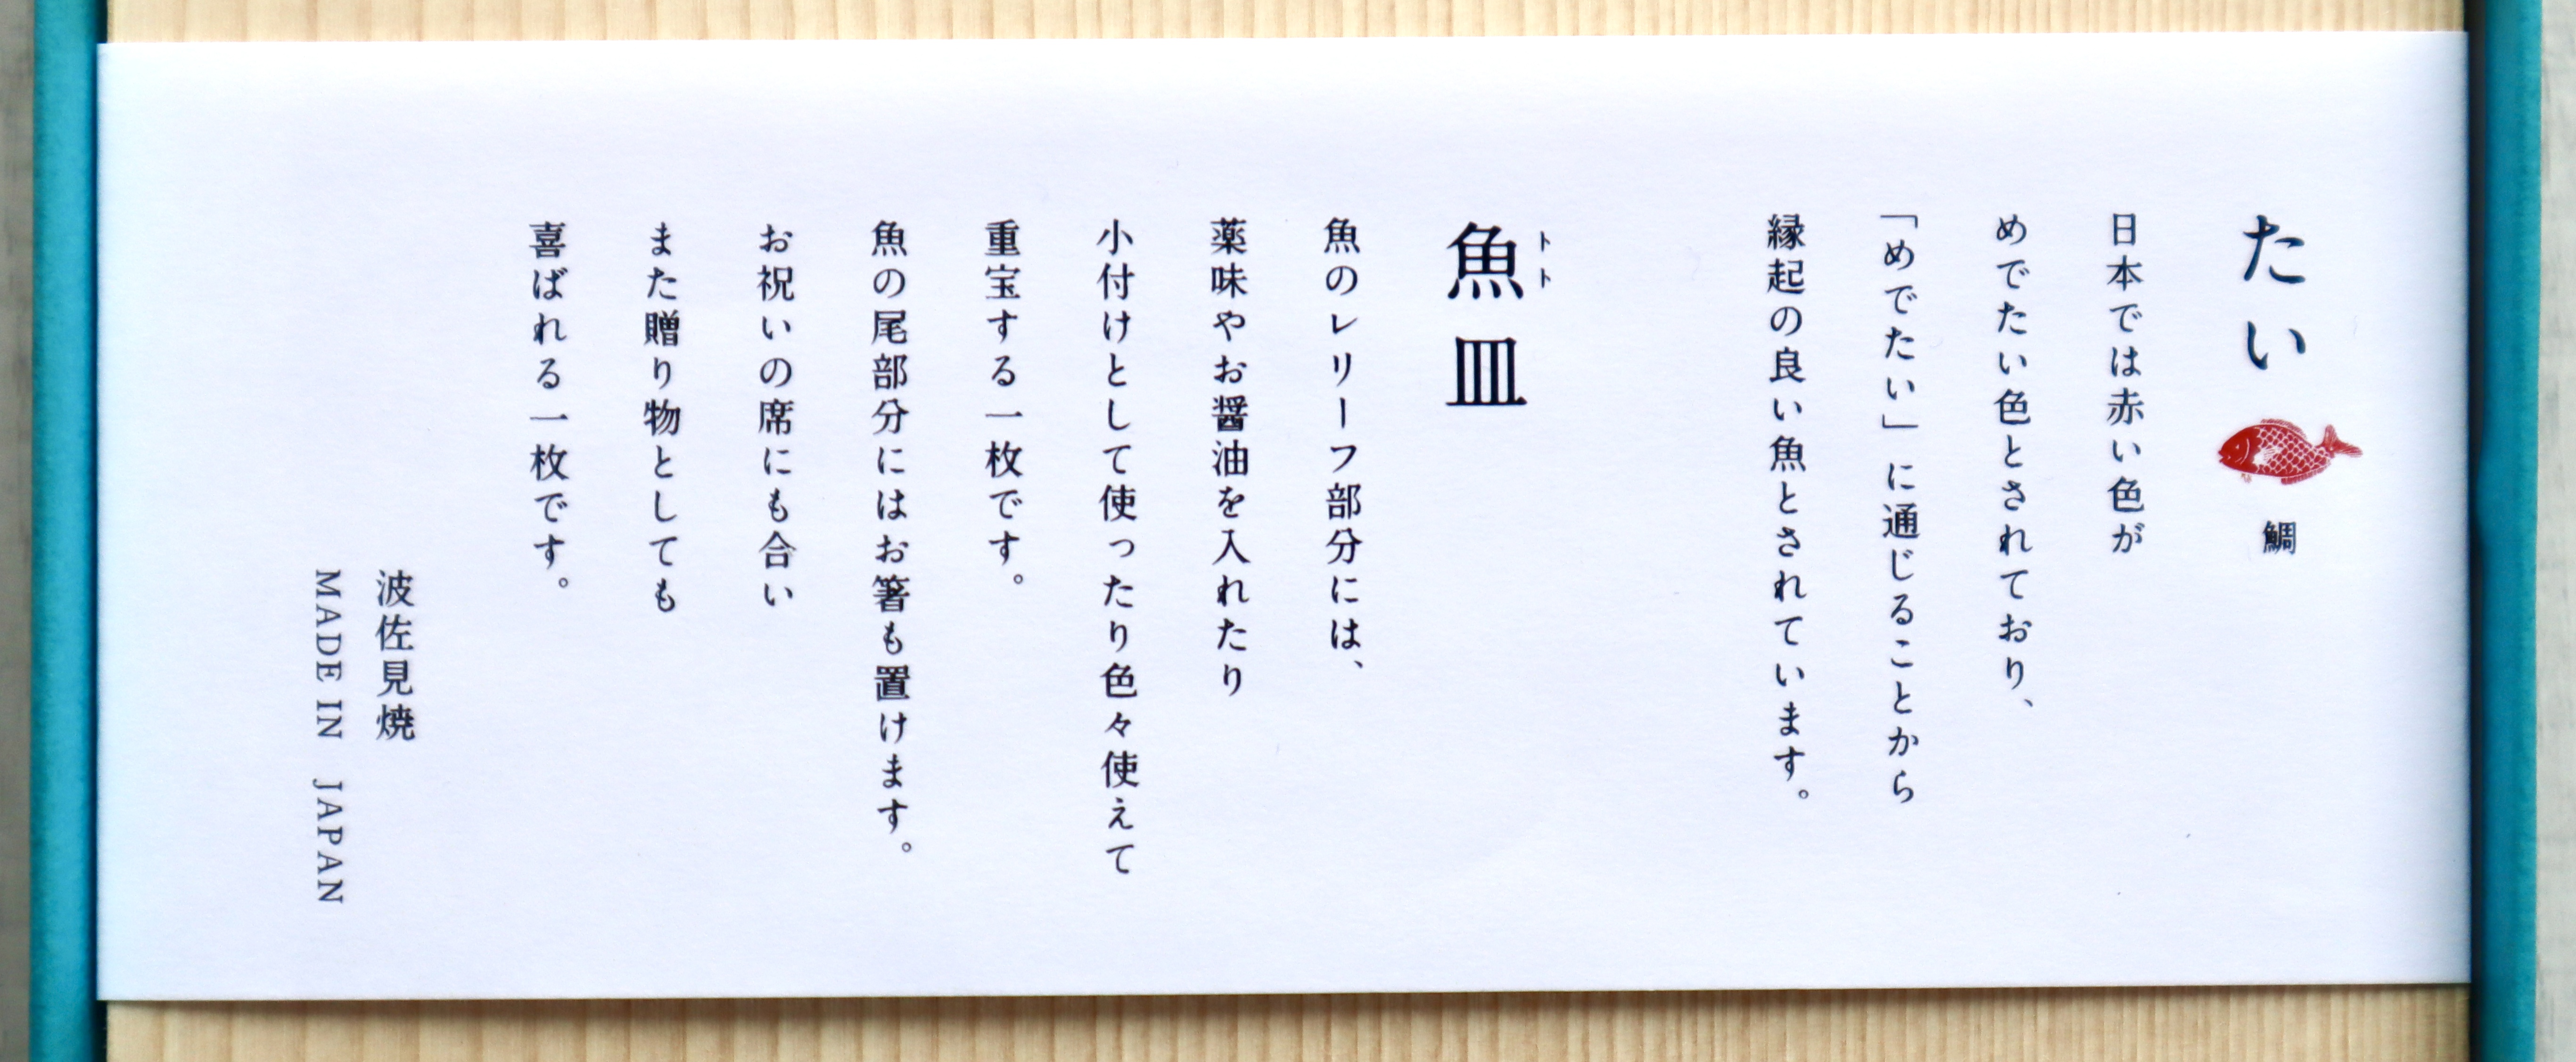 たい 鯛
日本では赤い色が
めでたい色とされており、
「めでたい」に通じることから
縁起の良い魚とされています。
魚皿
トト
魚のレリーフ部分には、
薬味やお醤油を入れたり
小付けとして使ったり色々使えて
重宝する一枚です。
魚の尾部分にはお箸も置けます。
お祝いの席にも合い
また贈り物としても
喜ばれる一枚です。
波佐見焼
MADE IN JAPAN